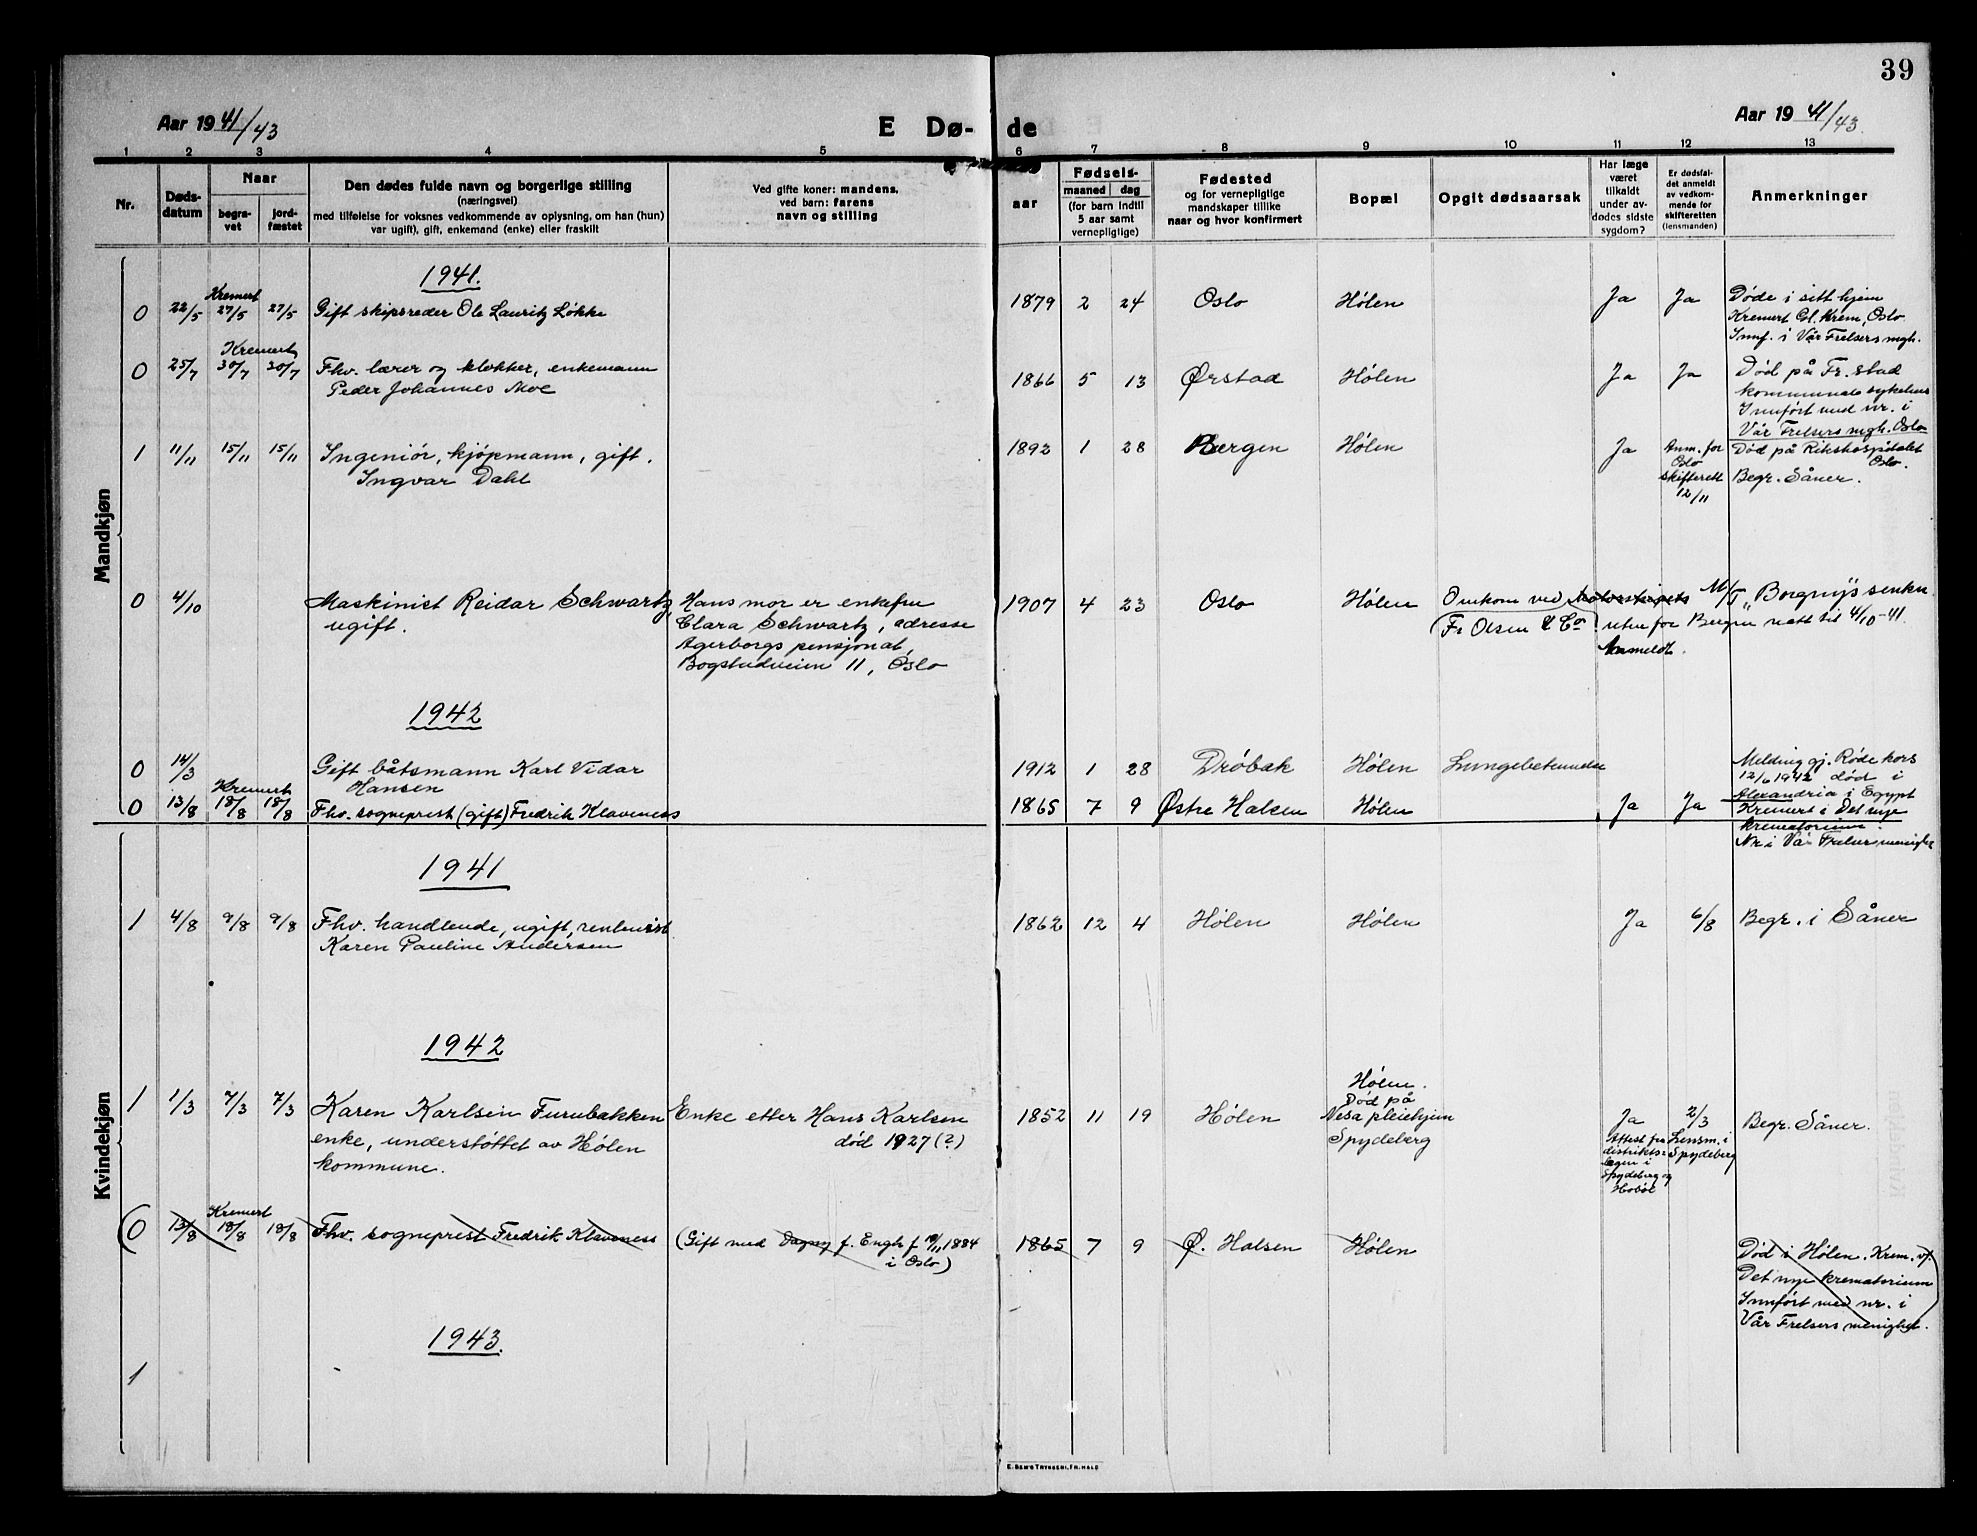 39
Aar 19 41/43
E Dø- de
Aar 19 41/43.
1 2 3 4 5 6 7 8 9 10 11 12 13
Nr.
Døds-
datum
Naar
begra-
vet
jord-
fæstet
Den dødes fulde navn og borgerlige stilling
(næringsvei)
med tilføielse for voksnes vedkommende av oplysning, om han (hun)
var ugift), gift, enkemand (enke) eller fraskilt
Ved gifte koner: mandens,
ved barn: farens
navn og stilling
Fødsels-
aar
maaned dag
(for barn indtil
5 aar samt
vernepligtige)
Fødested
og for vernepligtige
mandskaper tillike
naar og hvor konfirmert
Bopæl
Opgit dødsaarsak
Har læge
været
tilkaldt
under av-
dødes sidste
sygdom?
Er dødsfal-
det anmeldt
av vedkom-
mende for
skifteretten
(lensmanden)
Anmerkninger
Mandkjøn
1941.
Kremert
0 22/5 27/5 27/5 Gift skipsreder Ole Lauritz Løkke 1879 2 24 Oslo Hølen Ja Ja Døde i sitt hjem
Kremert Gl. Krem, Oslo
Innf. i Vår Frelsers mgh.
Kremert
0 25/7 30/7 30/7 Fhv. lærer og klokker, enkemann 1866 5 13 Ørstad Hølen Ja Ja Død på Fr.stad
Peder Johannes Moe kommunale sykehus
Innført med nr. i
Vår Frelsers mgh. Oslo
1 11/11 15/11 15/11 Ingeniør, kjøpmann, gift. 1892 1 28 Bergen Hølen Ja Anm. for Død på Rikshospitalet
Ingvar Dahl Oslo Oslo.
skifterett Begr. Såner.
12/11
0 4/10 Maskinist Reidar Schwartz, Hans mor er enkefru 1907 4 23 Oslo Hølen Omkom ved Motorskipets M/T "Borgny's senkn.
ugift. Clara Schwartz, adresse (Fr Olsen & Co) utenfor Bergen natt til 4/10-41.
Agerborgs pensjonat, Anmeldt.
Bogstadveien 11, Oslo
1942
0 14/3 Gift båtsmann Karl Vidar 1912 1 28 Drøbak Hølen Lungebetennelse Melding gj. Røde kors
Hansen 12/6 1942 død i
Alexandria i Egypt
Kremert
0 13/8 18/8 18/8 Fhv. sogneprest (gift) Fredrik Klaveness 1865 7 9 Østre Halsen Hølen Ja Ja Kremert i Det nye
krematorium.
Nr i Vår Frelsers menighet
Kvindekjøn
1941
1 4/8 9/8 9/8 Fhv. handlende, ugift, rentenist 1862 12 4 Hølen Hølen Ja 6/8 Begr. i Såner
Karen Pauline Andersen
1942
1 1/3 7/3 7/3 Karen Karlsen Furubakken Enke etter Hans Karlsen 1852 11 19 Hølen Hølen. Ja 2/3 Begr. Såner.
enke, understøttet av Hølen død 1927 (?) Død på
kommune. Nesa pleiehjem
Spydeberg
Attest fra
distrikts-
legen i
Spydeberg og
Hobøl
Lensm. i
Spydeberg
Kremert
(0 13/8 18/8 18/8 Fhv. sogneprest Fredrik Klaveness (Gift med Dagny f. Engh f 10/11 1884 1865 7 9 Ø. Halsen Hølen Død i Hølen. Krem. v.
i Oslo) Det nye krematorium
Innført med nr. i
Vår Frelsers menighet.
1943.
1
E. SEM'S TRYKKERI, FR.HALD